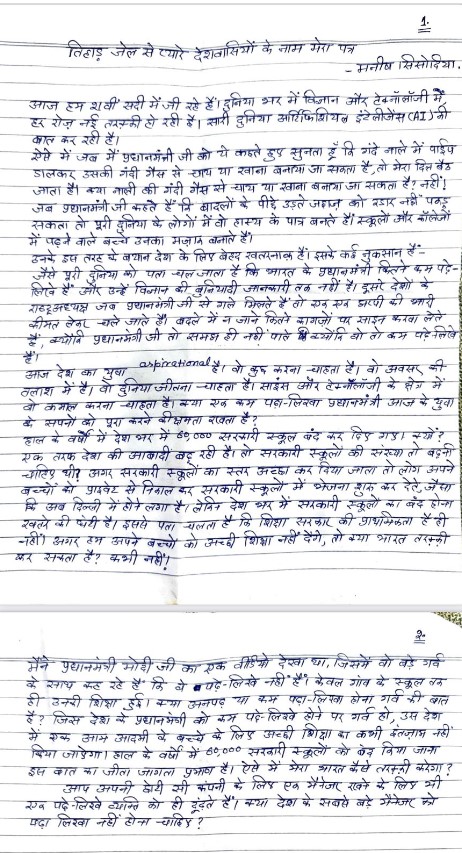 1.
तिहाड़ जेल से प्यारे देशवासियों के नाम मेरा पत्र
- मनीष सिसोदिया.
आज हम 21वीं सदी में जी रहे हैं। दुनिया भर में विज्ञान और टेक्नॉलॉजी में
हर रोज़ नई तरक्की हो रही है। सारी दुनिया आर्टिफिशियल इंटेलीजेंस (AI) की
बात कर रही है।
ऐसे में जब मैं प्रधानमंत्री जी को ये कहते हुए सुनता हूँ कि गंदे नाले में पाईप
डालकर उसकी गंदी गैस से चाय या खाना बनाया जा सकता है, तो मेरा दिल बैठ
जाता है। क्या नाली की गंदी गैस से चाय या खाना बनाया जा सकता है? नहीं!
जब प्रधानमंत्री जी कहते हैं कि बादलों के पीछे उड़ते जहाज को रडार नहीं पकड़
सकता तो पूरी दुनिया के लोगों में वो हास्य के पात्र बनते हैं। स्कूलों और कॉलेजों
में पढ़ने वाले बच्चे उनका मज़ाक बनाते हैं।
उनके इस तरह के बयान देश के लिए बेहद खतरनाक हैं। इसके कई नुकसान हैं -
जैसे पूरी दुनिया को पता चल जाता है कि भारत के प्रधानमंत्री कितने कम पढ़े-
लिखे हैं और उन्हें विज्ञान की बुनियादी जानकारी तक नहीं है। दूसरे देशों के
राष्ट्राध्यक्ष जब प्रधानमंत्री जी से गले मिलते हैं तो एक एक झप्पी की भारी
कीमत लेकर चले जाते हैं। बदले में न जाने कितने कागजों पर साइन करवा लेते
हैं, क्योंकि प्रधानमंत्री जी तो समझ ही नहीं पाते क्योंकि वो तो कम पढ़े-लिखे
हैं।
आज देश का युवा aspirational है। वो कुछ करना चाहता है। वो अवसर की
तलाश में है। वो दुनिया जीतना चाहता है। साइंस और टेक्नॉलॉजी के क्षेत्र में
वो कमाल करना चाहता है। क्या एक कम पढ़ा-लिखा प्रधानमंत्री आज के युवा
के सपनों को पूरा करने की क्षमता रखता है?
हाल के वर्षों में देश भर में 60,000 सरकारी स्कूल बंद कर दिए गए। क्यों?
एक तरफ देश की आबादी बढ़ रही है। तो सरकारी स्कूलों की संख्या तो बढ़नी
चाहिए थी? अगर सरकारी स्कूलों का स्तर अच्छा कर दिया जाता तो लोग अपने
बच्चों को प्राइवेट से निकाल कर सरकारी स्कूलों में भेजना शुरू कर देते, जैसा
कि अब दिल्ली में होने लगा है। लेकिन देश भर में सरकारी स्कूलों का बंद होना
खतरे की घंटी है। इससे पता चलता है कि शिक्षा सरकार की प्राथमिकता है ही
नहीं। अगर हम अपने बच्चों को अच्छी शिक्षा नहीं देंगे, तो क्या भारत तरक्की
कर सकता है? कभी नहीं!
2.
मैंने प्रधानमंत्री मोदी जी का एक वीडियो देखा था, जिसमें वो बड़े गर्व
के साथ कह रहे हैं कि वे पढ़े-लिखे नहीं हैं। केवल गांव के स्कूल तक
ही उनकी शिक्षा हुई। क्या अनपढ़ या कम पढ़ा-लिखा होना गर्व की बात
है? जिस देश के प्रधानमंत्री को कम पढ़े-लिखे होने पर गर्व हो, उस देश
में एक आम आदमी के बच्चे के लिए अच्छी शिक्षा का कभी इंतज़ाम नहीं
किया जाएगा। हाल के वर्षों में 60,000 सरकारी स्कूलों को बंद किया जाना
इस बात का जीता जागता प्रमाण है। ऐसे में मेरा भारत कैसे तरक्की करेगा?
आप अपनी छोटी सी कंपनी के लिए एक मैनेजर रखने के लिए भी
एक पढ़े-लिखे व्यक्ति को ही ढूंढते हैं। क्या देश के सबसे बड़े मैनेजर को
पढ़ा लिखा नहीं होना चाहिए?